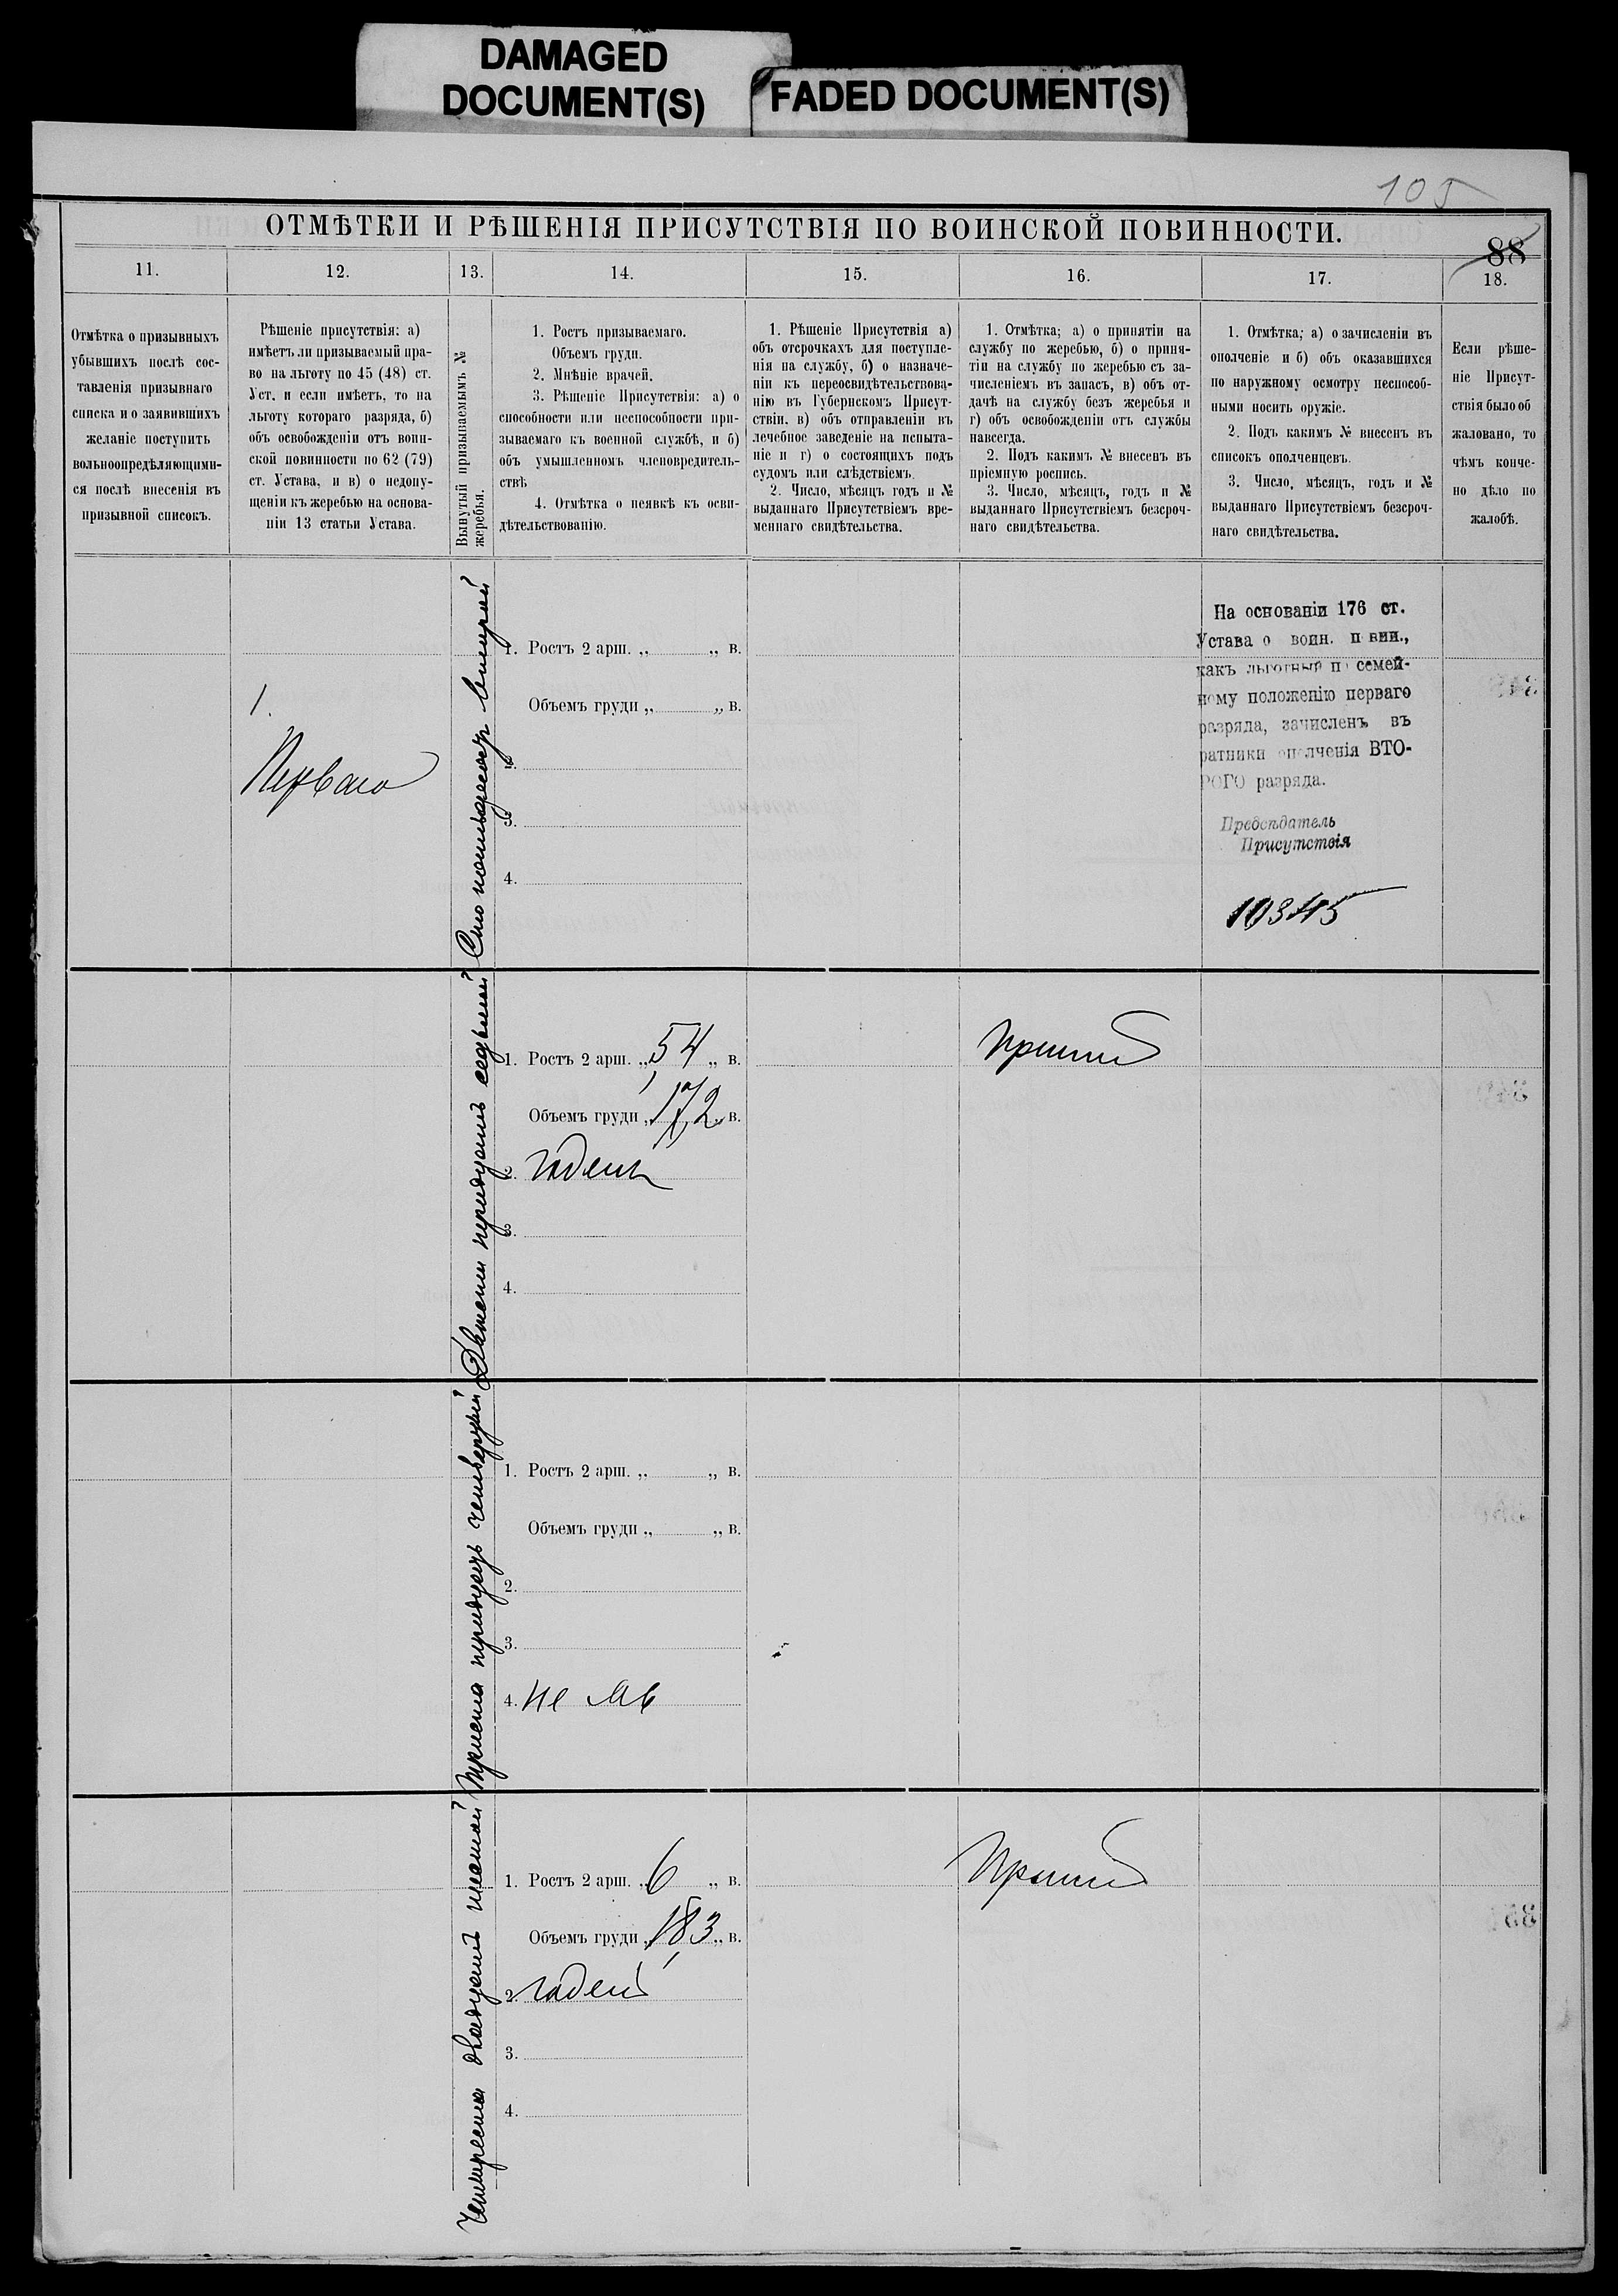 DAMAGED
DOCUMENT(S)
FADED DOCUMENT(S)
105
ОТМѢТКИ И РѢШЕНІЯ ПРИСУТСТВІЯ ПО ВОИНСКОЙ ПОВИННОСТИ.
88
11.
12.
13.
14.
15.
16.
17.
18.
Отмѣтка о призывныхъ
убывшихъ послѣ сос-
тавленія призывнаго
списка и о заявившихъ
желаніе поступить
вольноопредѣляющими-
ся послѣ внесенія въ
призывной списокъ.
Рѣшеніе присутствія: а)
имѣетъ ли призываемый пра-
во на льготу по 45 (48) ст.
Уст. и если имѣетъ, то на
льготу котораго разряда, б)
объ освобожденіи отъ воин-
ской повинности по 62 (79)
ст. Устава, и в) о недопу-
щеніи къ жеребью на основа-
ніи 13 статьи Устава.
Вынутый призываемымъ №
жеребья.
1. Ростъ призываемаго.
Объемъ груди.
2. Мнѣніе врачей.
3. Рѣшеніе Присутствія: а) о
способности или неспособности при-
зываемаго къ военной службѣ, и б)
объ умышленномъ членовредитель-
ствѣ
4. Отмѣтка о неявкѣ къ осви-
дѣтельствованію.
1. Рѣшеніе Присутствія а)
объ отсрочкахъ для поступле-
нія на службу, б) о назначе-
ніи къ переосвидѣтельствова-
нію въ Губернскомъ Присут-
ствіи, в) объ отправленіи въ
лечебное заведеніе на испыта-
ніе и г) о состоящихъ подъ
судомъ или слѣдствіемъ.
2. Число, мѣсяцъ годъ и №
выданнаго Присутствіемъ вре-
меннаго свидѣтельства.
1. Отмѣтка; а) о принятіи на
службу по жеребью, б) о приня-
тіи на службу по жеребью съ за-
численіемъ въ запасъ, в) объ от-
дачѣ на службу безъ жеребья и
г) объ освобожденіи отъ службы
навсегда.
2. Подъ какимъ № внесенъ въ
пріемную роспись.
3. Число, мѣсяцъ, годъ и №
выданнаго Присутствіемъ безсроч-
наго свидѣтельства.
1. Отмѣтка; а) о зачисленіи въ
ополченіе и б) объ оказавшихся
по наружному осмотру неспособ-
ными носить оружіе.
2. Подъ какимъ № внесенъ въ
списокъ ополченцевъ.
3. Число, мѣсяцъ, годъ и №
выданнаго Присутствіемъ безсроч-
наго свидѣтельства.
Если рѣше-
ніе Присут-
ствія было об
жаловано, то
чѣмъ конче-
но дѣло по
жалобѣ.
1.
Перваго
Сто пятьдесятъ второй
1. Ростъ 2 арш. „ „ в.
Объемъ груди „ „ в.
2.
3.
4.
На основаніи 176 ст.
Устава о воин. п вин.,
какъ льготный п семей-
ному положенію перваго
разряда, зачисленъ въ
ратники ополченія ВТО-
РОГО разряда.
Предсѣдатель
Присутствія
10345
Двѣсти тридцать седьмой
1. Ростъ 2 арш. „ 5 4 „ в.
Объемъ груди „ 17,2 „ в.
2. годенъ
3.
4.
принятъ
Триста тридцать четвертый
1. Ростъ 2 арш. „ „ в.
Объемъ груди „ „ в.
2.
3.
4. не яв
Четыреста двадцать шестой
1. Ростъ 2 арш. „ 6 „ в.
Объемъ груди „ 18,3 „ в.
2. годенъ
3.
4.
Принятъ